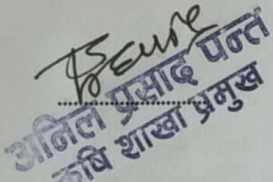 अनिल प्रसाद पन्त
कृषि शाखा प्रमुख